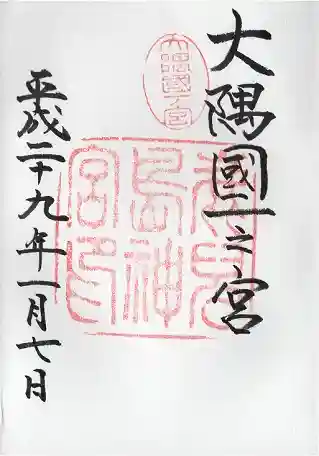 大隅國一之宮
大隅國一宮
鹿児島神宮印
平成二十九年一月七日